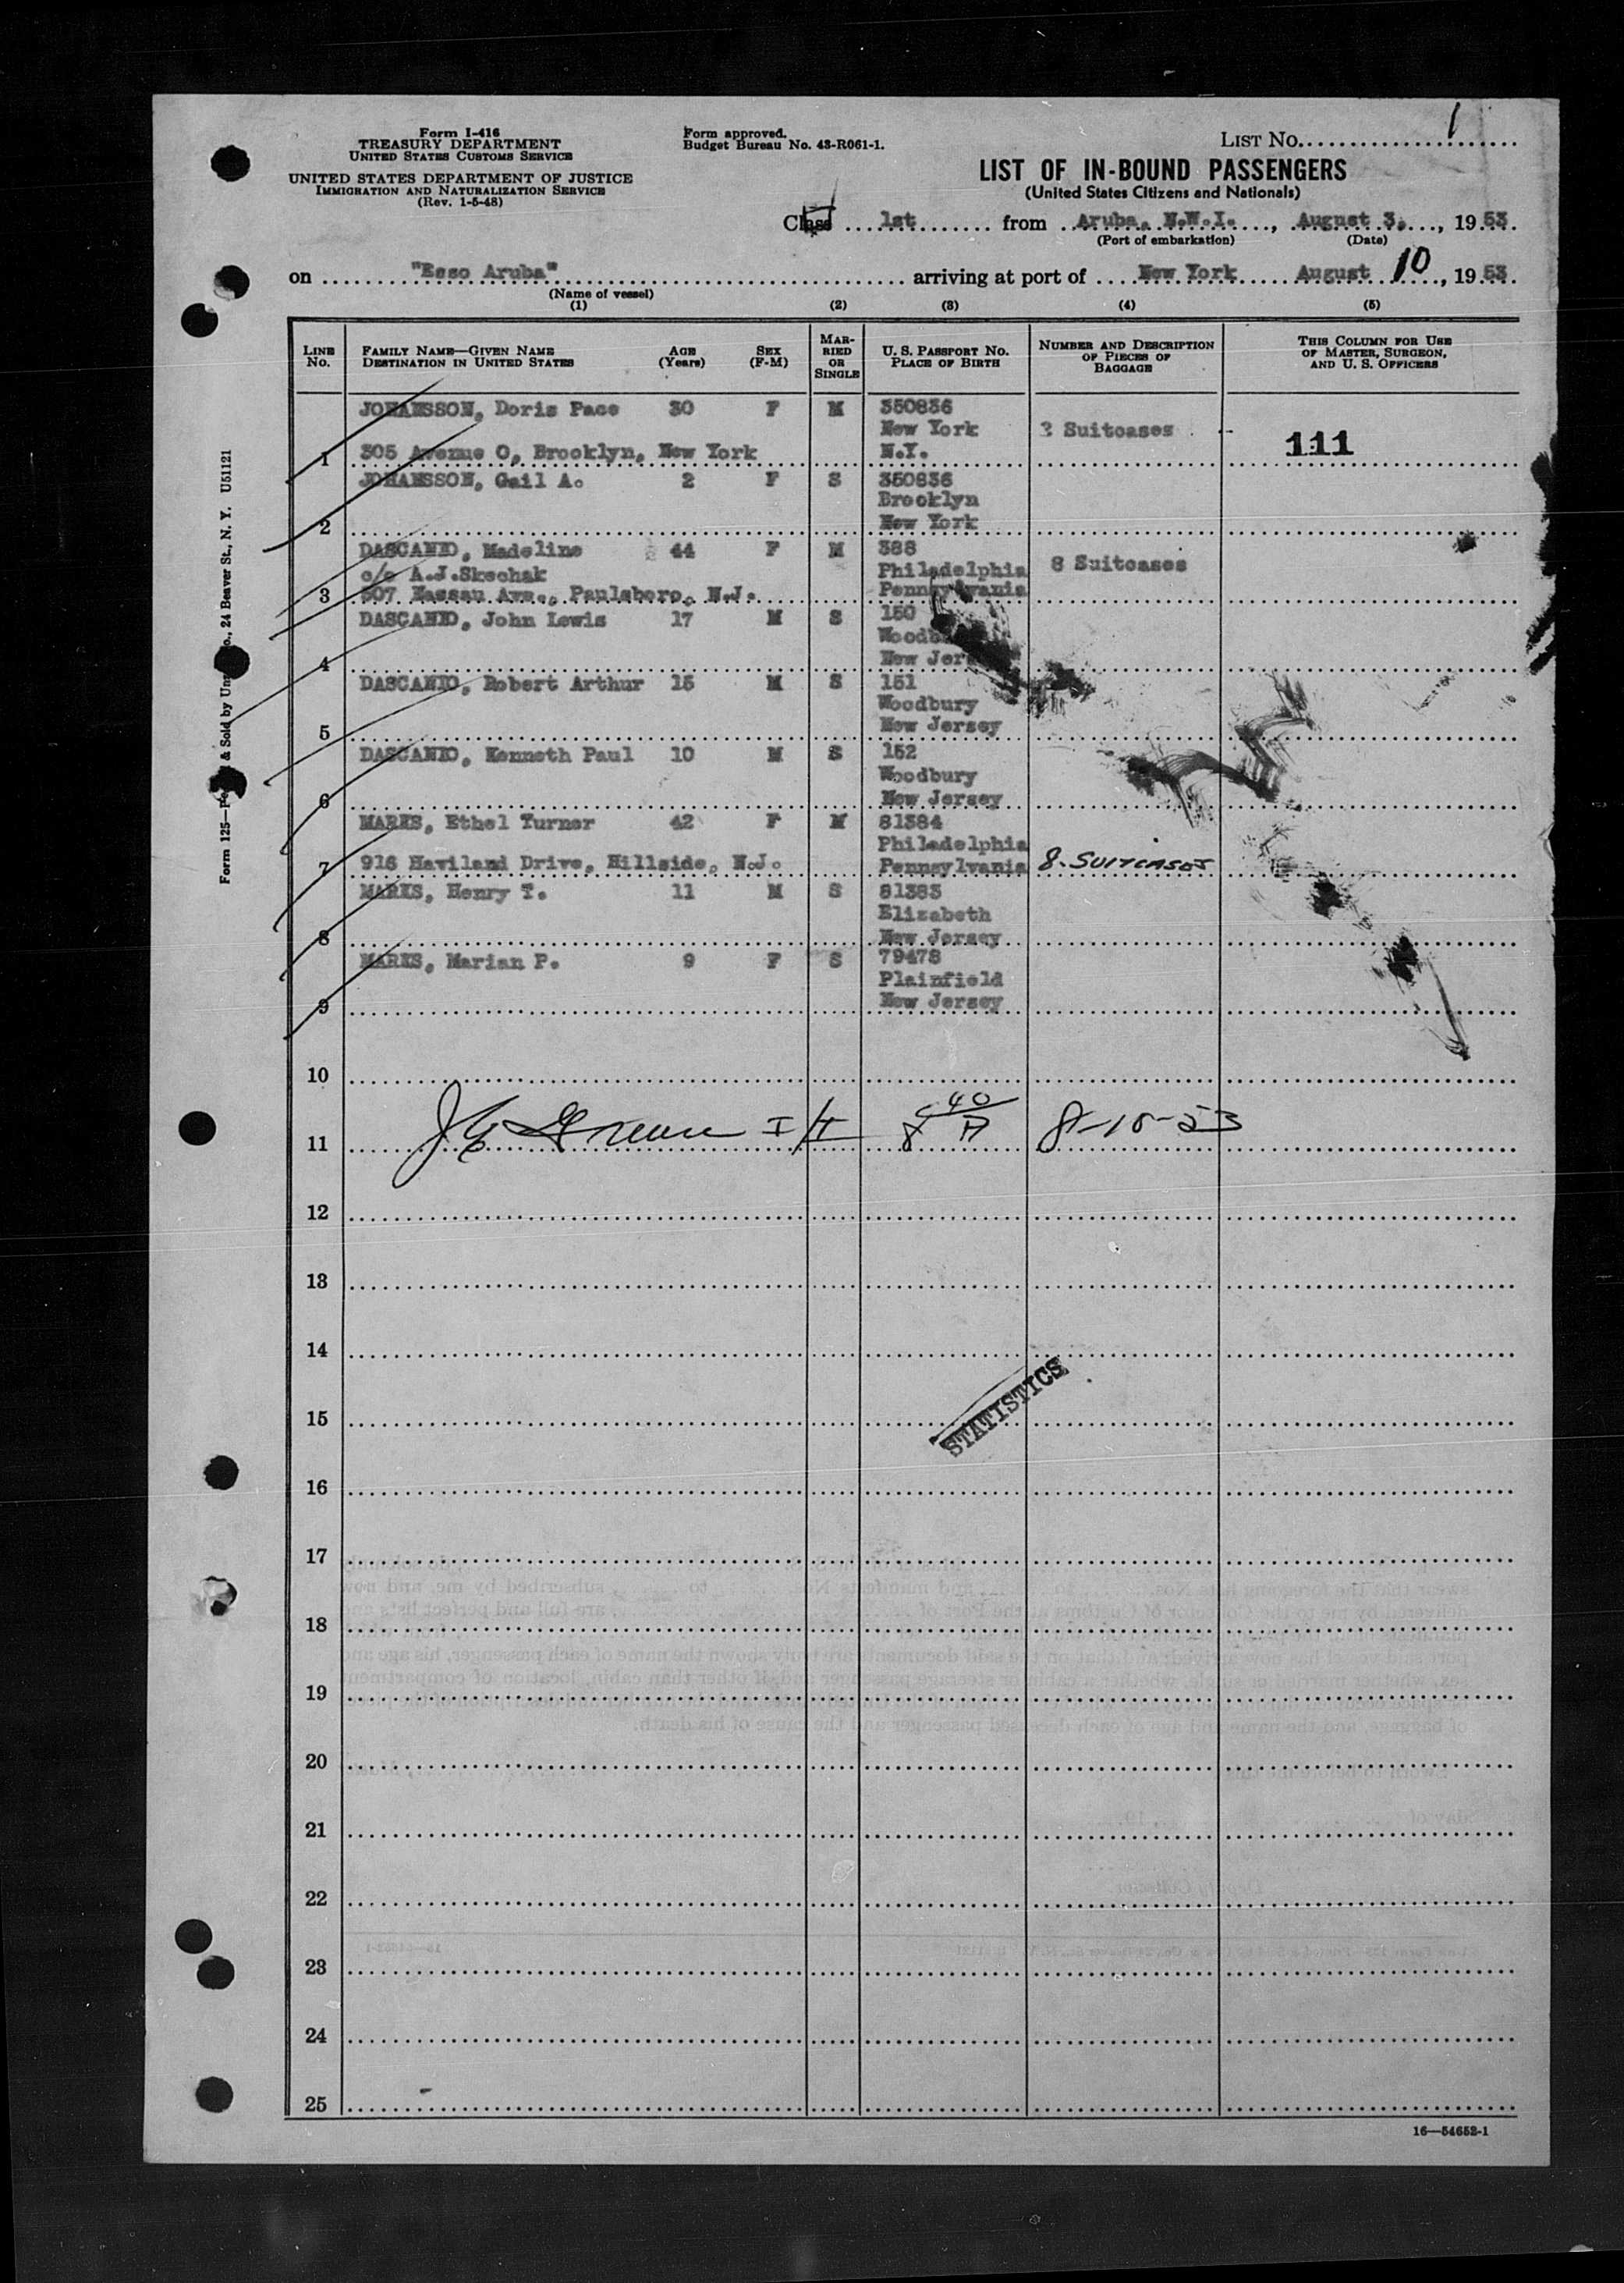 Form I-416
TREASURY DEPARTMENT
UNITED STATES CUSTOMS SERVICE
UNITED STATES DEPARTMENT OF JUSTICE
IMMIGRATION AND NATURALIZATION SERVICE
(Rev. 1-5-48)
Form approved.
Budget Bureau No. 43-R061-1.
LIST No. 1
LIST OF IN-BOUND PASSENGERS
(United States Citizens and Nationals)
Class 1st from Aruba, N.W.I., August 3, 1953
(Port of embarkation) (Date)
on "Esso Aruba" arriving at port of New York August 10, 1953
(Name of vessel)
(1) (2) (3) (4) (5)
LINE No.
FAMILY NAME—GIVEN NAME
DESTINATION IN UNITED STATES
AGE (Years)
SEX (F-M)
MARRIED OR SINGLE
U. S. PASSPORT NO.
PLACE OF BIRTH
NUMBER AND DESCRIPTION OF PIECES OF BAGGAGE
THIS COLUMN FOR USE OF MASTER, SURGEON, AND U. S. OFFICERS
JOHANSSON, Doris Pace 30 F M 350836
New York Suitcases
111
1 305 Avenue O, Brooklyn, New York N.Y.
JOHANSSON, Gail A. 2 F S 350836
Brooklyn
2 New York
DASCANIO, Madeline 44 F M 388
c/o A.J.Skechak Philadelphia 8 Suitcases
3 507 Nassau Ave., Paulsboro, N.J. Pennsylvania
DASCANIO, John Lewis 17 M S 150
Woodbury
4 New Jersey
DASCANIO, Robert Arthur 15 M S 151
Woodbury
5 New Jersey
DASCANIO, Kenneth Paul 10 M S 152
Woodbury
6 New Jersey
MARKS, Ethel Turner 42 F M 81384
Philadelphia
7 916 Haviland Drive, Hillside, N.J. Pennsylvania 8. SUITCASES
MARKS, Henry T. 11 M S 81383
Elizabeth
8 New Jersey
MARKS, Marian P. 9 F S 79478
Plainfield
9 New Jersey
10
11 8-10-53
12
13
14
STATISTICS
15
16
17
18
19
20
21
22
23
24
25
16—54652-1